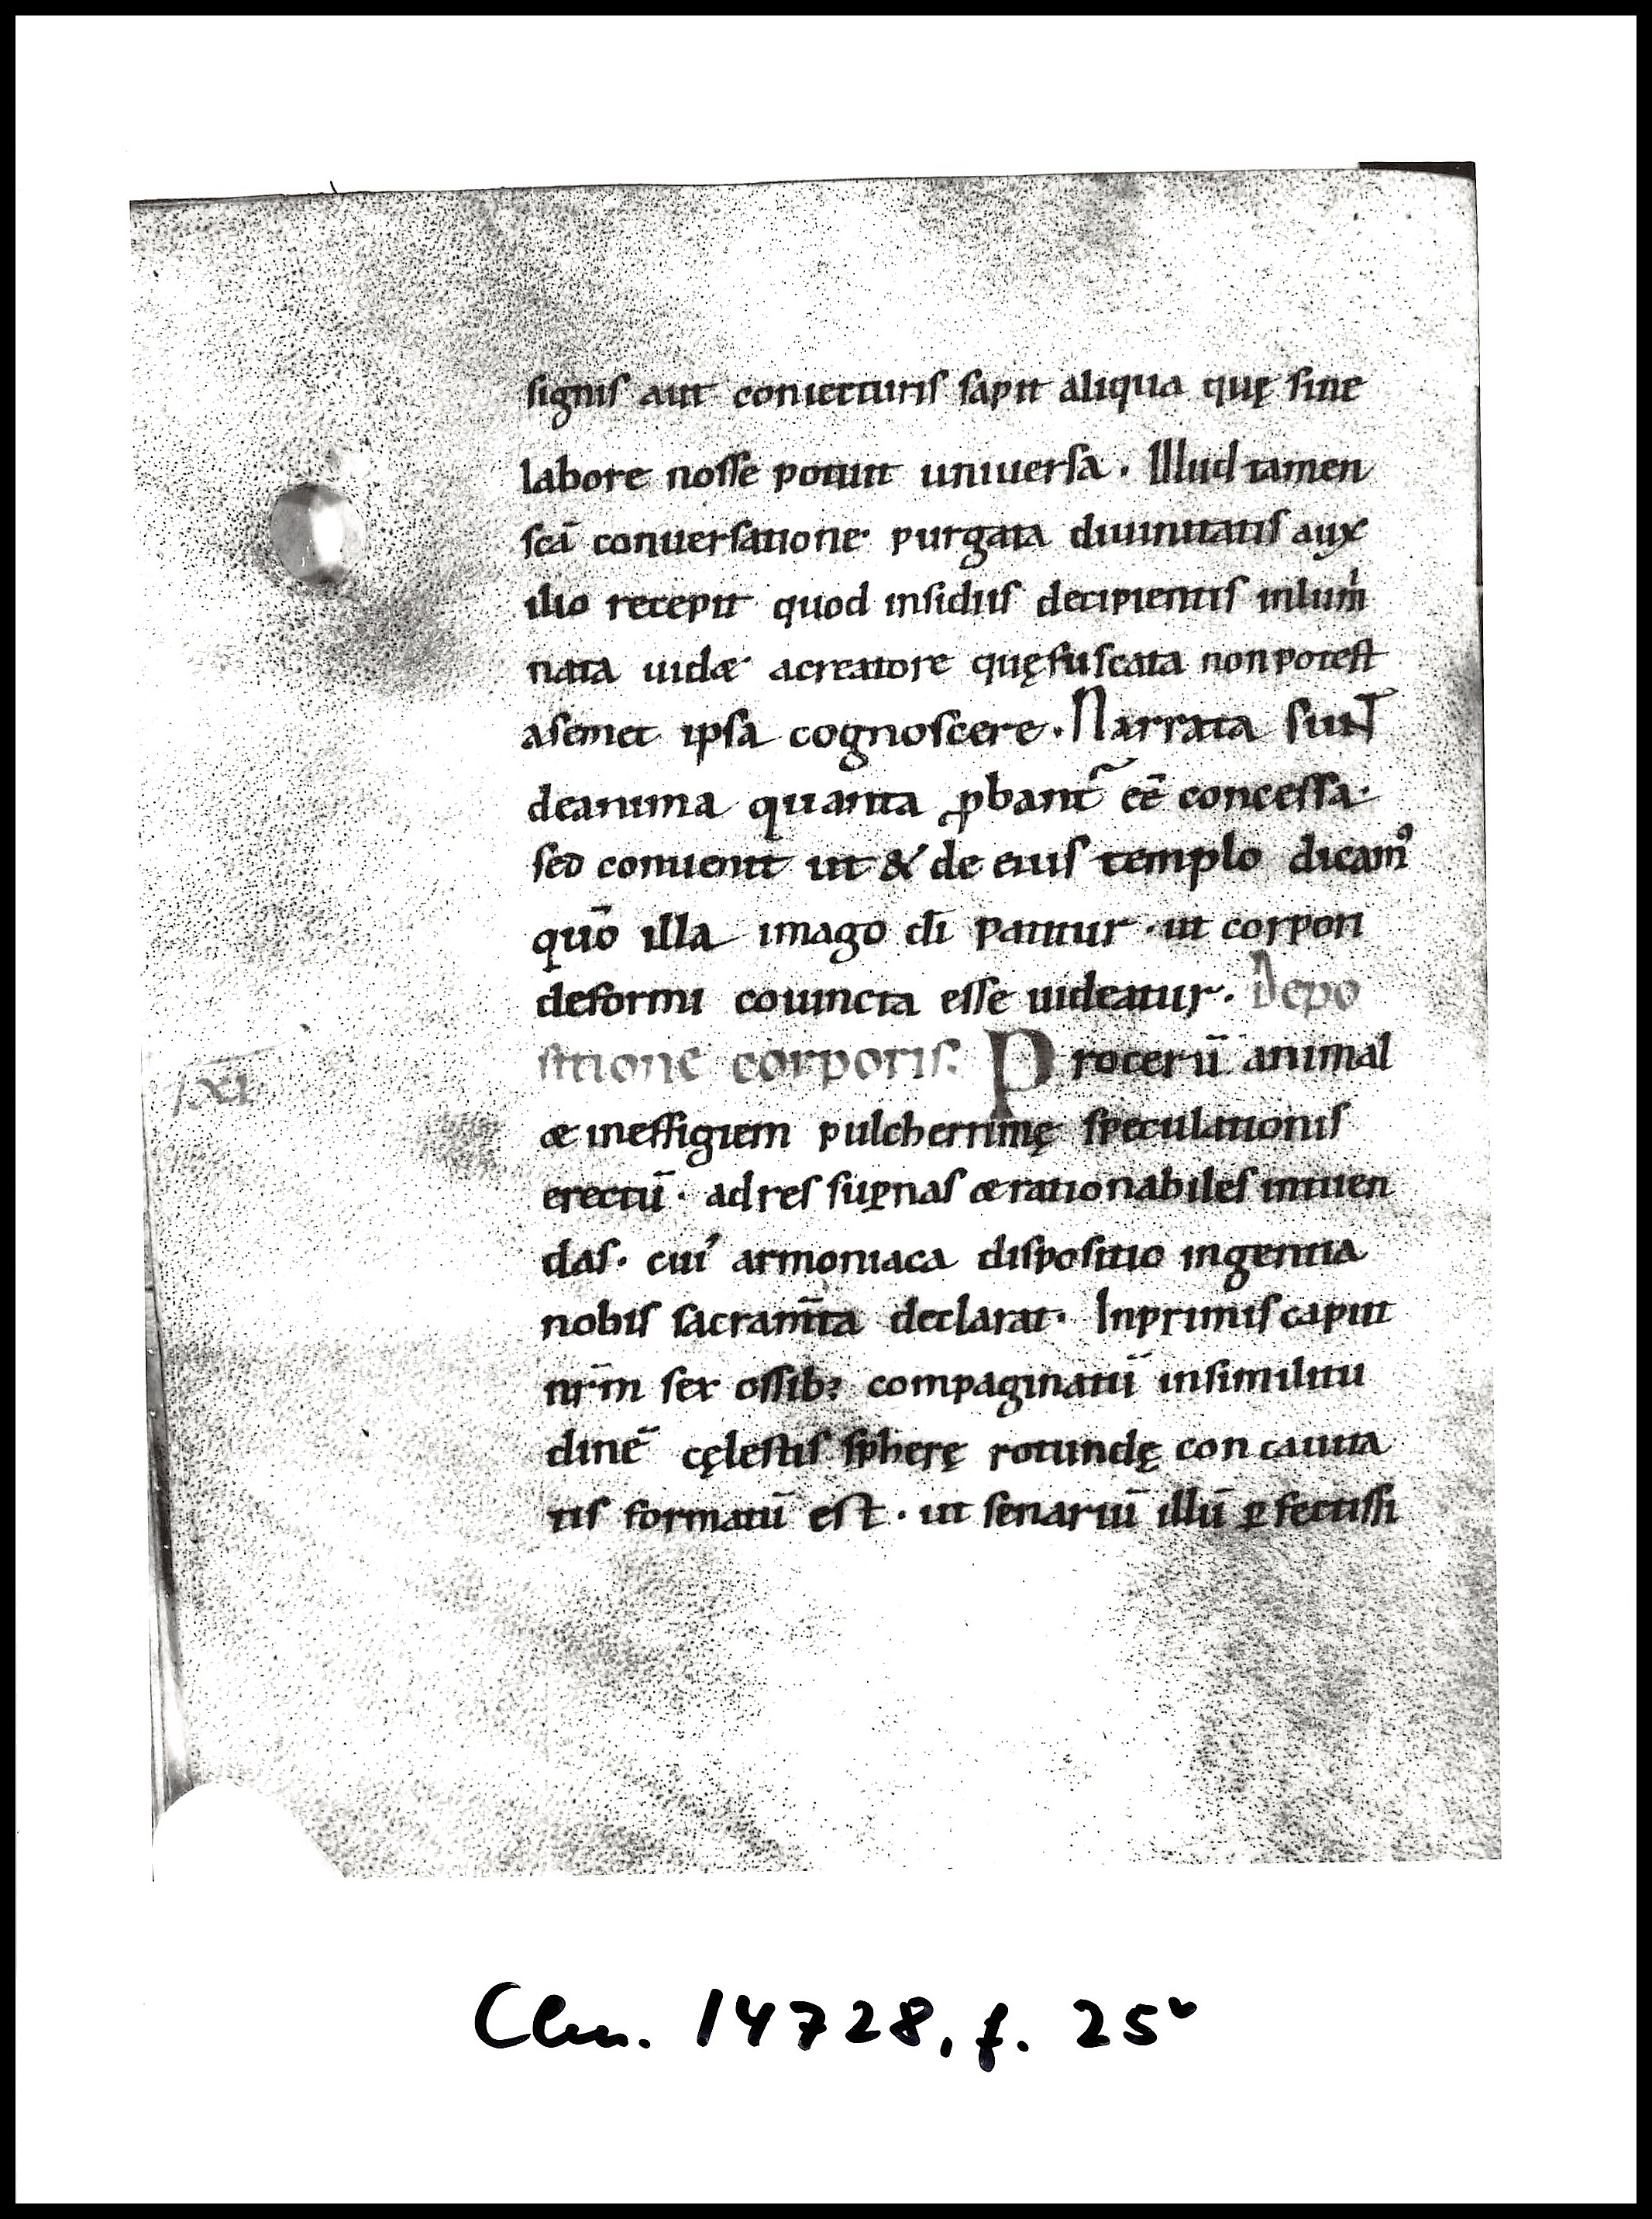 signis aut coniecturis sapit aliqua quę sine
labore nosse potuit uniuersa. Illud tamen
scā conuersatione purgata diuinitatis aux
ilio recepit quod insidiis decipientis inlumi
nata uidæ acreatore quęfuscata nonpotest
asemet ipsa cognoscere. Narrata sunt
deanima quanta ꝓbant᷒ eē concessa.
sed conuenit ut & de eius templo dicamꝰ
quō illa imago dī patitur. ut corpori
deformi couincta esse uideatur. Depo
sitione corporis. Procerū animal
XI
æ ineffigiem pulcherrimę speculationis
erectū. adres suꝑnas æ rationabiles intuen
das. cui' armoniaca dispositio ingentia
nobis sacram̄ta declarat. Inprimis caput
nr̄m sex ossib; compaginatū insimilitu
dinē cęlestis spherę rotundę concauita
tis formatū est. ut senariū illū ꝑfectissi
Clm. 14728, f. 25v